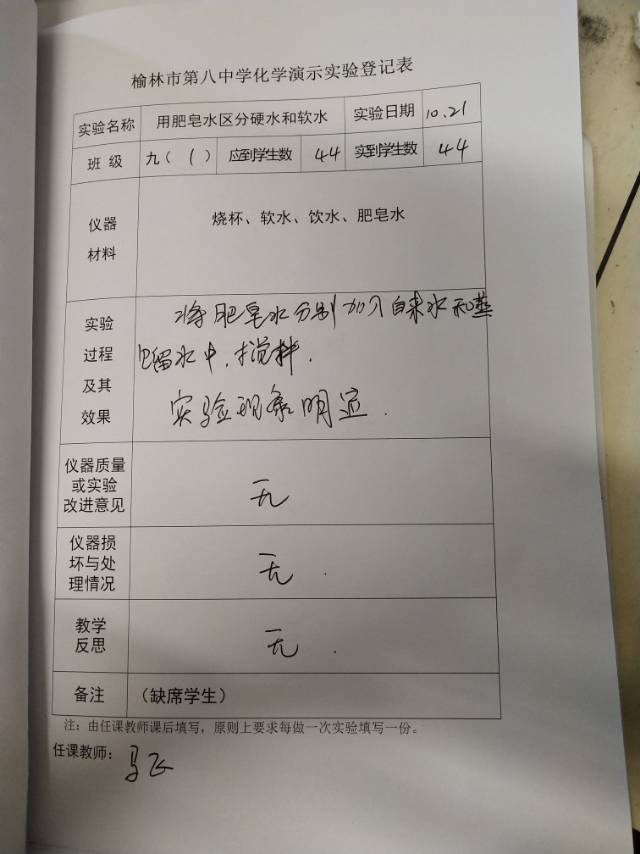 榆林市第八中学化学演示实验登记表
实验名称 用肥皂水区分硬水和软水 实验日期 10.21
班 级 九( 1 ) 应到学生数 44 实到学生数 44
仪器
材料
烧杯、软水、饮水、肥皂水
实验
过程
及其
效果
将肥皂水分别加入自来水和蒸
馏水中,搅拌.
实验现象明显.
仪器质量
或实验
改进意见
无
仪器损
坏与处
理情况
无.
教学
反思
无.
备注 (缺席学生)
注:由任课教师课后填写,原则上要求每做一次实验填写一份。
任课教师: 马飞